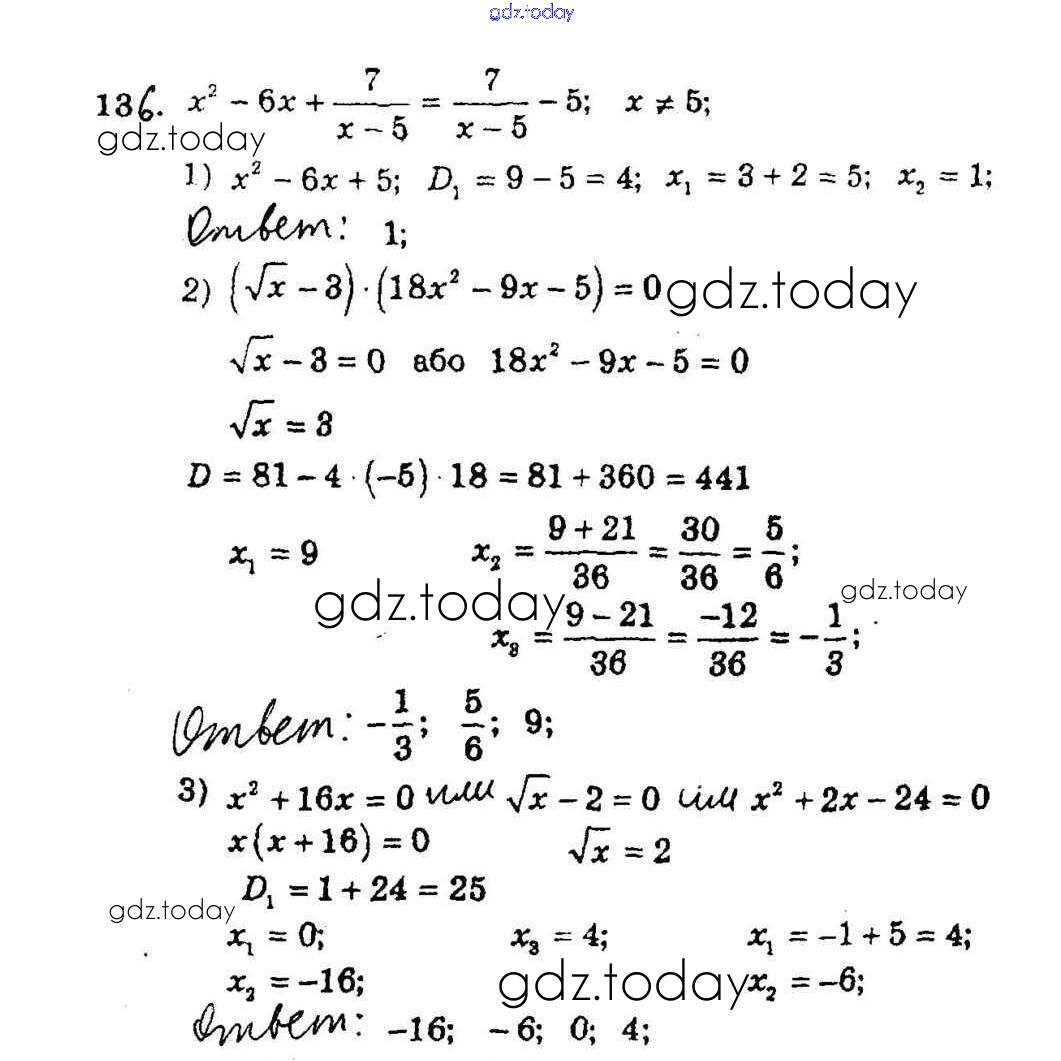 gdz.today
136. x² − 6x + 7/(x − 5) = 7/(x − 5) − 5; x ≠ 5;
gdz.today
1) x² − 6x + 5; D₁ = 9 − 5 = 4; x₁ = 3 + 2 = 5; x₂ = 1;
Ответ: 1;
2) (√x − 3) · (18x² − 9x − 5) = 0 gdz.today
√x − 3 = 0 або 18x² − 9x − 5 = 0
√x = 3
D = 81 − 4 · (−5) · 18 = 81 + 360 = 441
x₁ = 9 x₂ = (9 + 21)/36 = 30/36 = 5/6;
gdz.today gdz.today
x₃ = (9 − 21)/36 = −12/36 = −1/3;
Ответ: −1/3; 5/6; 9;
3) x² + 16x = 0 или √x − 2 = 0 или x² + 2x − 24 = 0
x(x + 16) = 0 √x = 2
D₁ = 1 + 24 = 25
gdz.today
x₁ = 0; x₃ = 4; x₁ = −1 + 5 = 4;
x₂ = −16; gdz.today x₂ = −6;
Ответ: −16; −6; 0; 4;